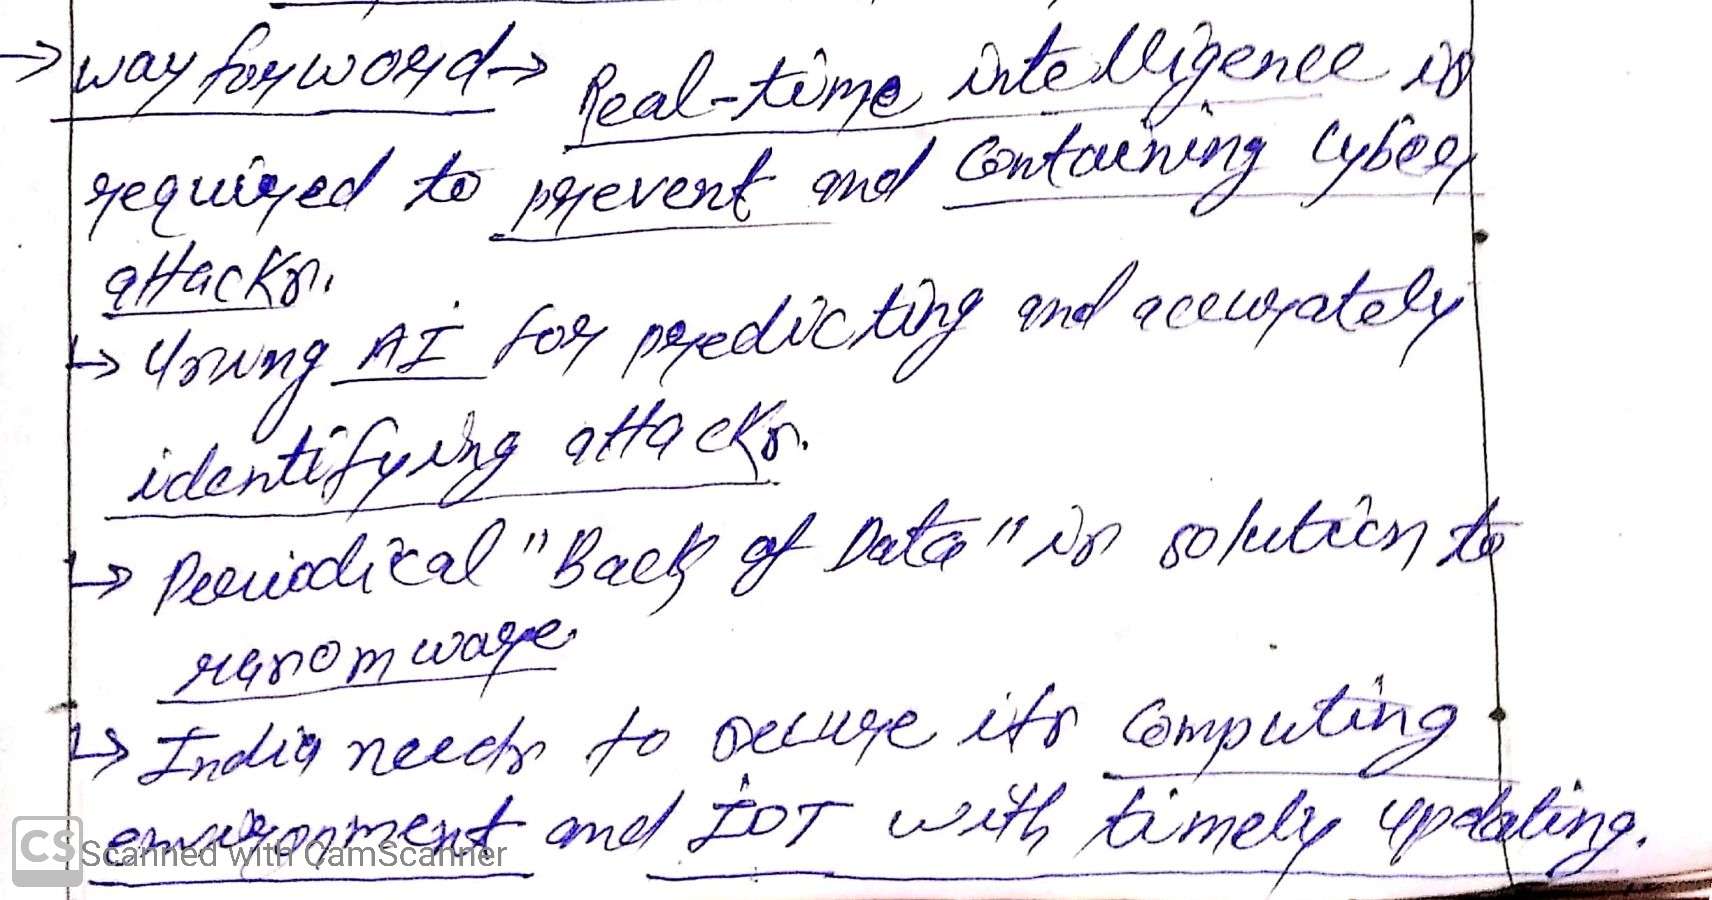 → way forword → Real-time intelligence is
required to prevent and Containing Cyber
attacks.
↳ Using AI for predicting and accurately
identifying attacks.
↳ Periodical "Back of Data" is solution to
ransomware
↳ India needs to secure its Computing
environment and IOT with timely updating.
CS Scanned with CamScanner